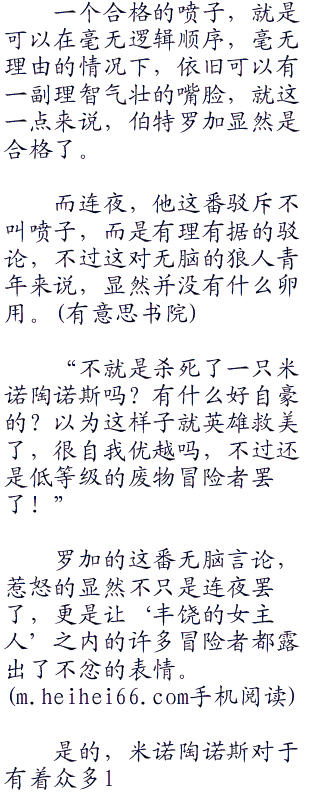 一个合格的喷子，就是
可以在毫无逻辑顺序，毫无
理由的情况下，依旧可以有
一副理智气壮的嘴脸，就这
一点来说，伯特罗加显然是
合格了。
而连夜，他这番驳斥不
叫喷子，而是有理有据的驳
论，不过这对无脑的狼人青
年来说，显然并没有什么卵
用。(有意思书院)
“不就是杀死了一只米
诺陶诺斯吗？有什么好自豪
的？以为这样子就英雄救美
了，很自我优越吗，不过还
是低等级的废物冒险者罢
了！”
罗加的这番无脑言论，
惹怒的显然不只是连夜罢
了，更是让‘丰饶的女主
人’之内的许多冒险者都露
出了不忿的表情。
(m.heihei66.com手机阅读)
是的，米诺陶诺斯对于
有着众多1